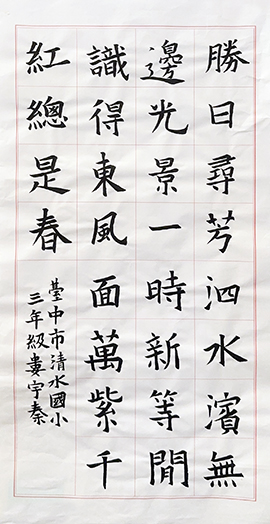 勝日尋芳泗水濱無
邊光景一時新等閒
識得東風面萬紫千
紅總是春
臺中市清水國小
三年級婁宇秦